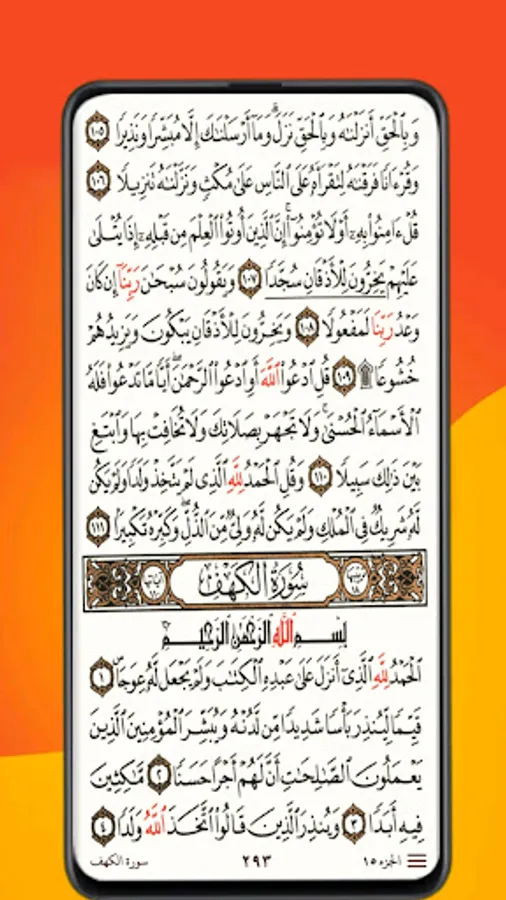 وَبِٱلۡحَقِّ أَنزَلۡنَٰهُ وَبِٱلۡحَقِّ نَزَلَۗ وَمَآ أَرۡسَلۡنَٰكَ إِلَّا مُبَشِّرٗا وَنَذِيرٗا ١٠٥
وَقُرۡءَانٗا فَرَقۡنَٰهُ لِتَقۡرَأَهُۥ عَلَى ٱلنَّاسِ عَلَىٰ مُكۡثٖ وَنَزَّلۡنَٰهُ تَنزِيلٗا ١٠٦
قُلۡ ءَامِنُواْ بِهِۦٓ أَوۡ لَا تُؤۡمِنُوٓاْۚ إِنَّ ٱلَّذِينَ أُوتُواْ ٱلۡعِلۡمَ مِن قَبۡلِهِۦٓ إِذَا يُتۡلَىٰ
عَلَيۡهِمۡ يَخِرُّونَ لِلۡأَذۡقَانِۤ سُجَّدٗاۤ ١٠٧ وَيَقُولُونَ سُبۡحَٰنَ رَبِّنَآ إِن كَانَ
وَعۡدُ رَبِّنَا لَمَفۡعُولٗا ١٠٨ وَيَخِرُّونَ لِلۡأَذۡقَانِ يَبۡكُونَ وَيَزِيدُهُمۡ
خُشُوعٗا ۩ ١٠٩ قُلِ ٱدۡعُواْ ٱللَّهَ أَوِ ٱدۡعُواْ ٱلرَّحۡمَٰنَۖ أَيّٗا مَّا تَدۡعُواْ فَلَهُ
ٱلۡأَسۡمَآءُ ٱلۡحُسۡنَىٰۚ وَلَا تَجۡهَرۡ بِصَلَاتِكَ وَلَا تُخَافِتۡ بِهَا وَٱبۡتَغِ
بَيۡنَ ذَٰلِكَ سَبِيلٗا ١١٠ وَقُلِ ٱلۡحَمۡدُ لِلَّهِ ٱلَّذِي لَمۡ يَتَّخِذۡ وَلَدٗا وَلَمۡ يَكُن
لَّهُۥ شَرِيكٞ فِي ٱلۡمُلۡكِ وَلَمۡ يَكُن لَّهُۥ وَلِيّٞ مِّنَ ٱلذُّلِّۖ وَكَبِّرۡهُ تَكۡبِيرَۢا ١١١
سُورَةُ الكَهۡفِ
بِسۡمِ ٱللَّهِ ٱلرَّحۡمَٰنِ ٱلرَّحِيمِ
ٱلۡحَمۡدُ لِلَّهِ ٱلَّذِيٓ أَنزَلَ عَلَىٰ عَبۡدِهِ ٱلۡكِتَٰبَ وَلَمۡ يَجۡعَل لَّهُۥ عِوَجَاۜ ١
قَيِّمٗا لِّيُنذِرَ بَأۡسٗا شَدِيدٗا مِّن لَّدُنۡهُ وَيُبَشِّرَ ٱلۡمُؤۡمِنِينَ ٱلَّذِينَ
يَعۡمَلُونَ ٱلصَّٰلِحَٰتِ أَنَّ لَهُمۡ أَجۡرًا حَسَنٗا ٢ مَّٰكِثِينَ
فِيهِ أَبَدٗا ٣ وَيُنذِرَ ٱلَّذِينَ قَالُواْ ٱتَّخَذَ ٱللَّهُ وَلَدٗا ٤
الجزء ١٥ ٢٩٣ سورة الكهف